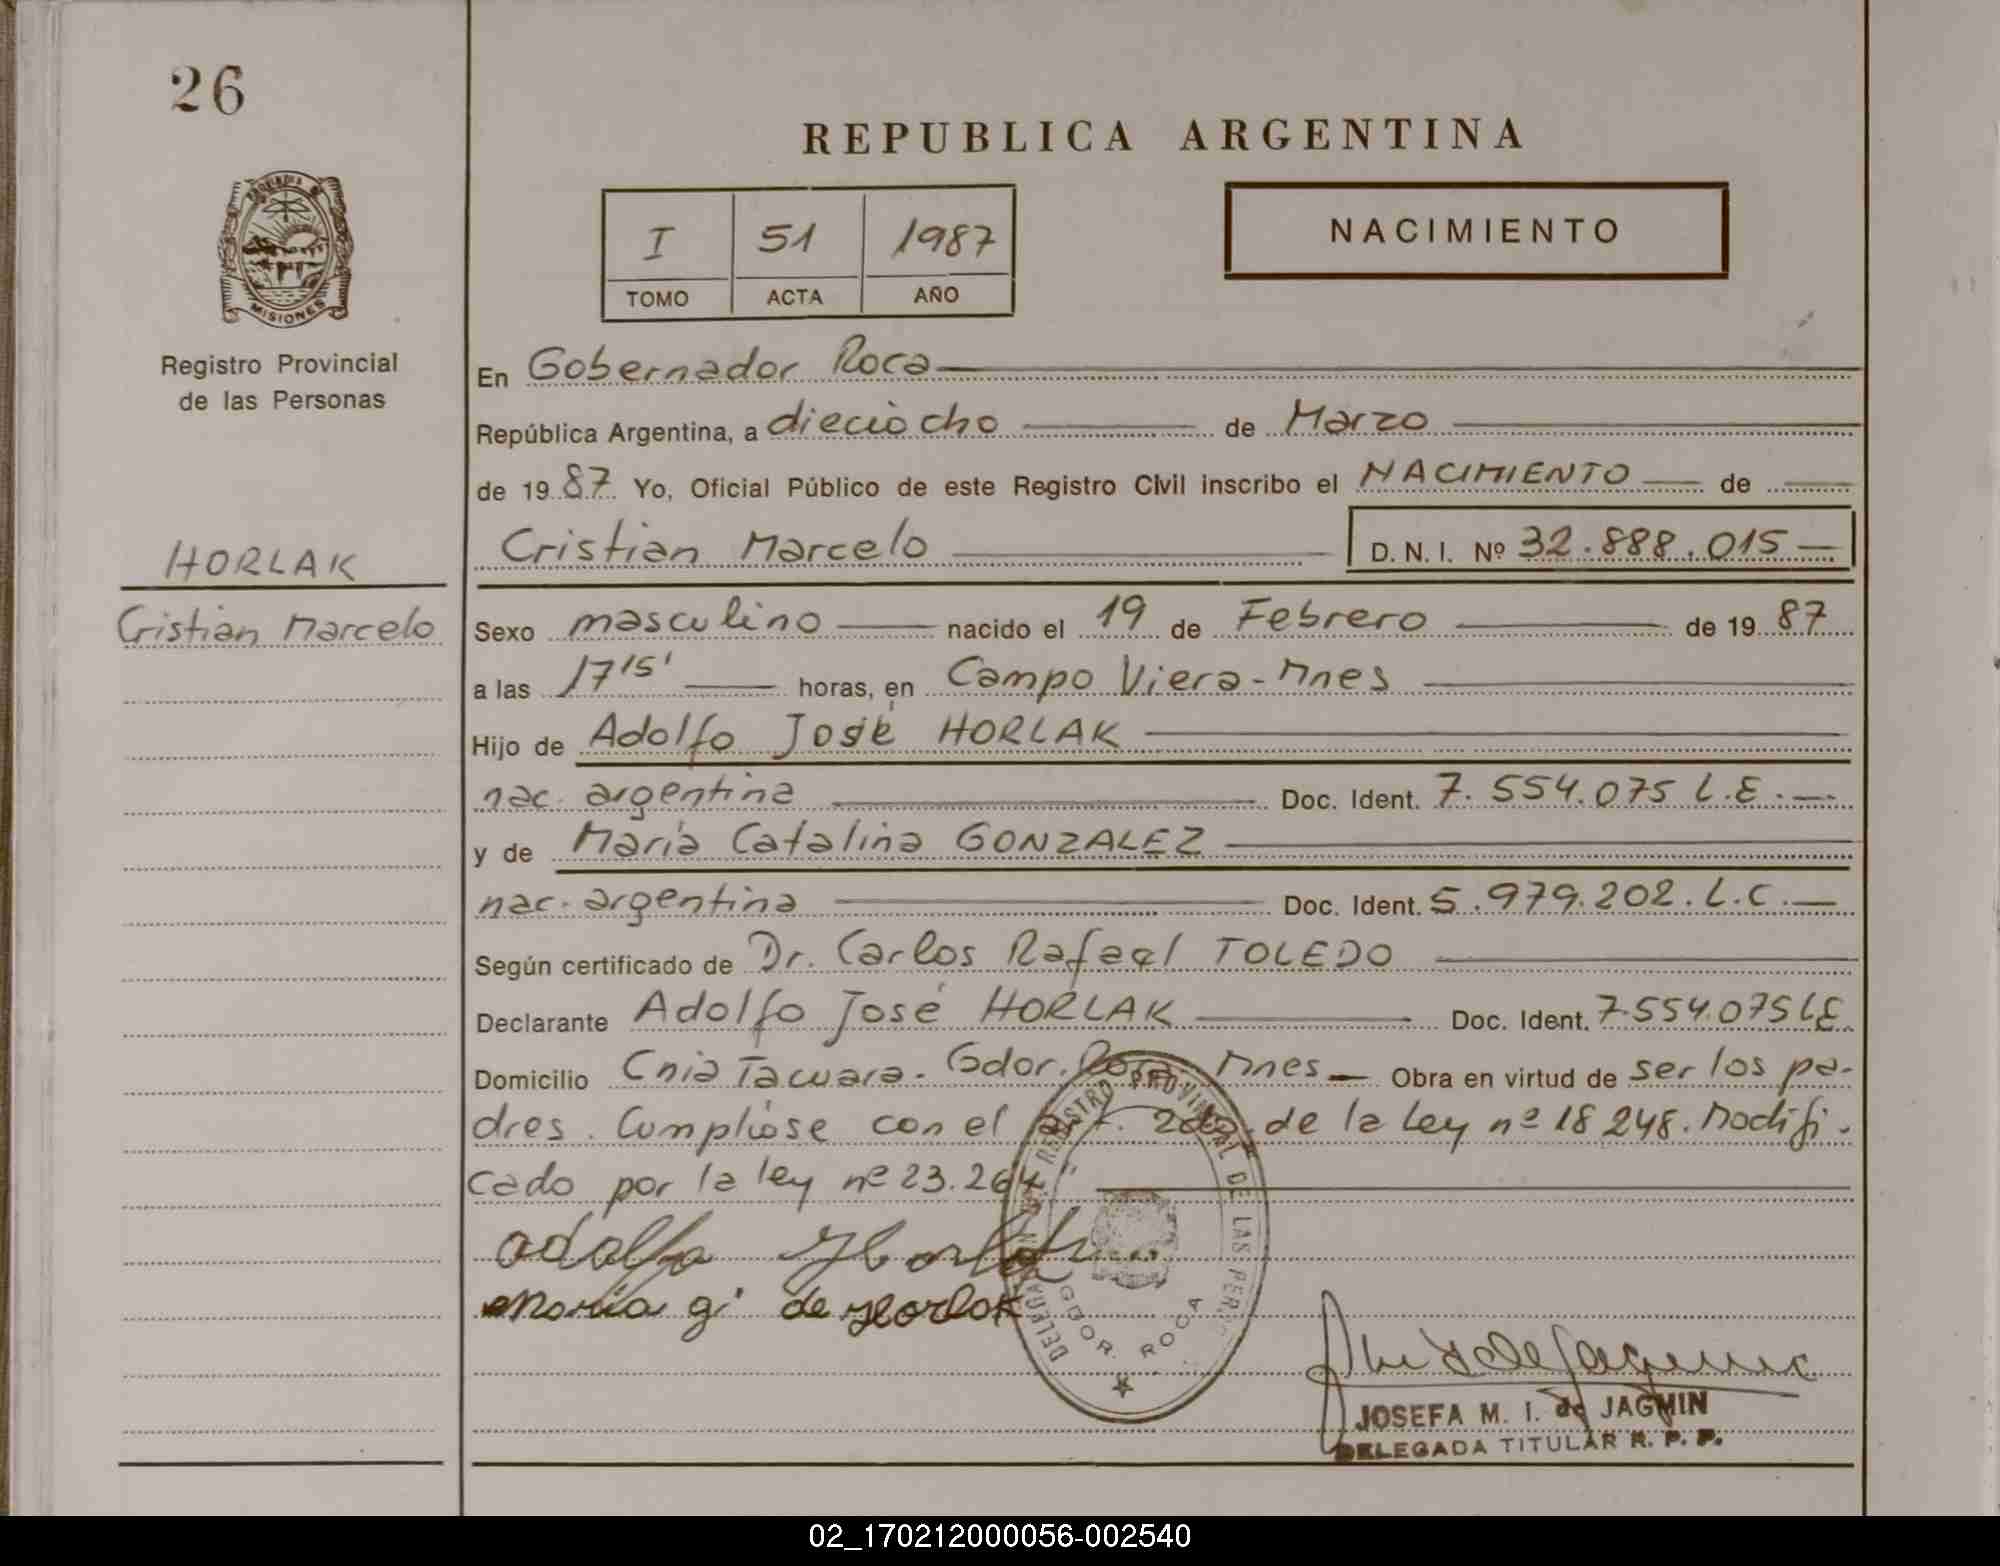 26
REPUBLICA ARGENTINA
I 51 1987
TOMO ACTA AÑO
NACIMIENTO
PROVINCIA DE
MISIONES
Registro Provincial
de las Personas
HORLAK
Cristian Marcelo
En Gobernador Roca
República Argentina, a dieciocho de Marzo
de 1987 Yo, Oficial Público de este Registro Civil inscribo el NACIMIENTO de
Cristian Marcelo D. N. I. Nº 32.888.015
Sexo masculino nacido el 19 de Febrero de 1987
a las 17 15' horas, en Campo Viera - Mnes
Hijo de Adolfo José HORLAK
nac. argentina Doc. Ident. 7.554.075 L.E.
y de María Catalina GONZALEZ
nac. argentina Doc. Ident. 5.979.202. L.C.
Según certificado de Dr. Carlos Rafael TOLEDO
Declarante Adolfo José HORLAK Doc. Ident. 7.554.075 LE
Domicilio Cnia Tacuara. Gdor. Roca Mnes Obra en virtud de ser los pa-
dres. Cumpliose con el art. 2do. de la Ley nº 18 248. Modifi-
cado por la ley nº 23.264
Adolfo Horlak
Maria g. de Horlak
DELEGACION DEL REGISTRO PROVINCIAL DE LAS PERSONAS
GDOR. ROCA
JOSEFA M. I. de JAGMIN
DELEGADA TITULAR R. P. P.
02_170212000056-002540